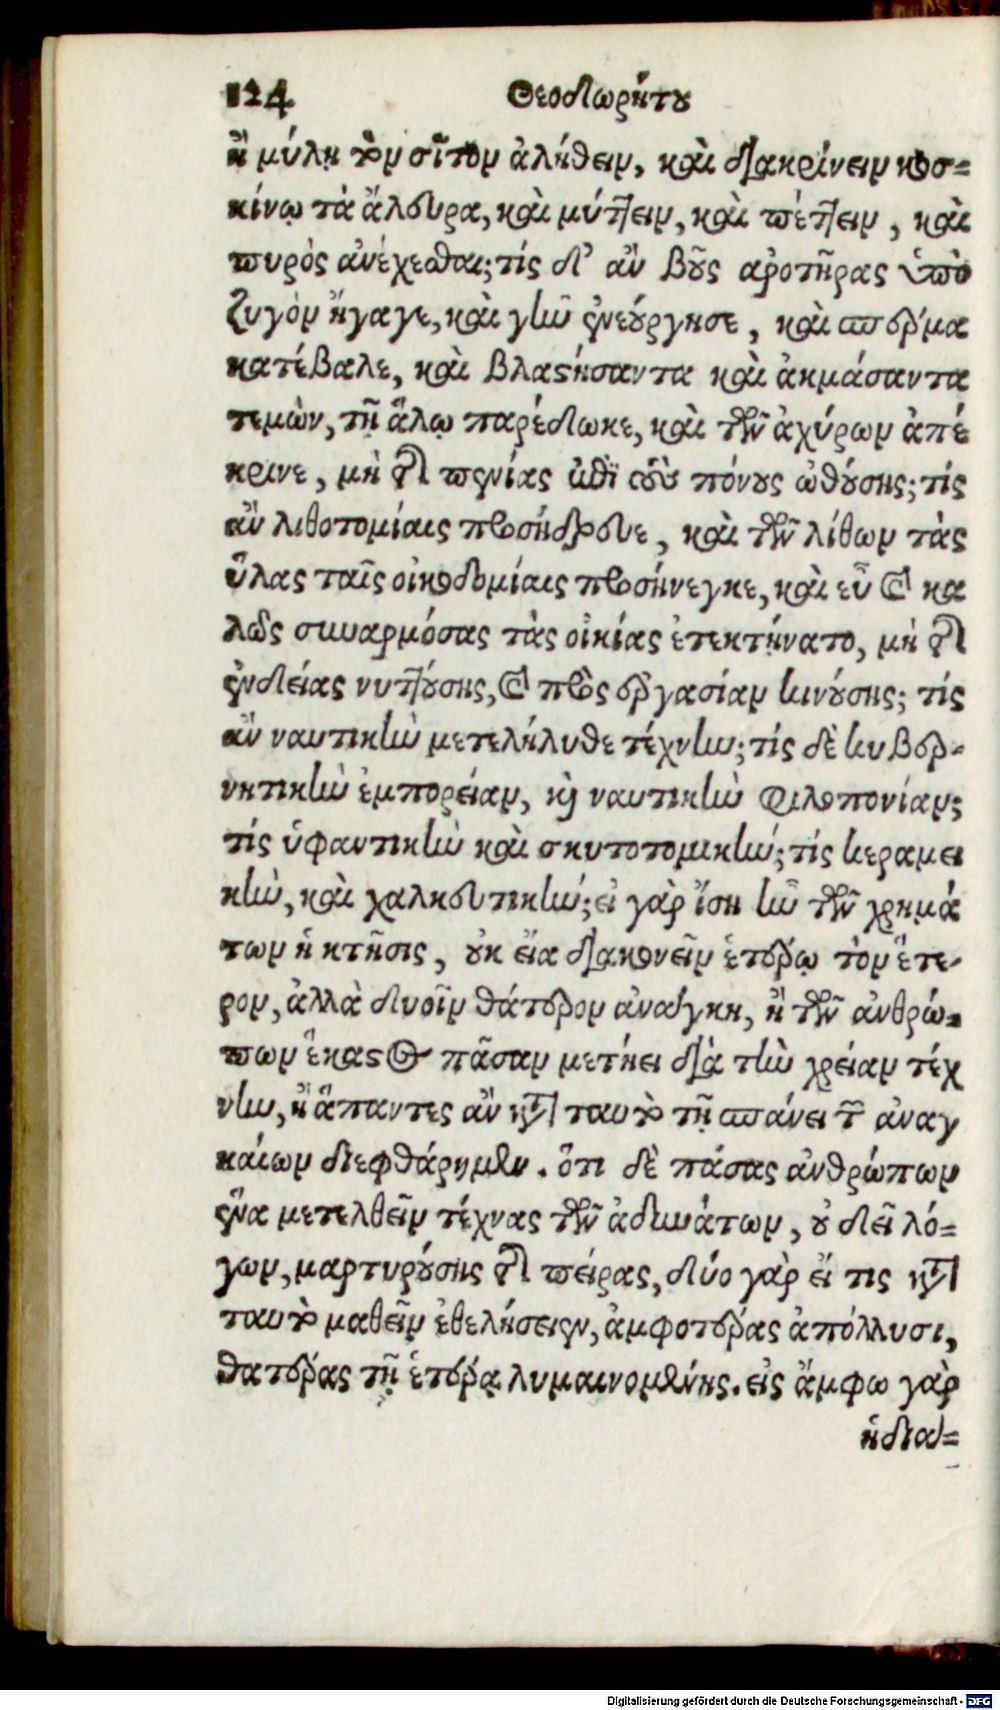 124 Θεοδωρήτου
ἢ μύλῃ τὸν σῖτον ἀλήθειν, καὶ διακρίνειν κοσ-
κίνῳ τὰ ἄλευρα, καὶ μάττειν, καὶ πέττειν, καὶ
πυρὸς ἀνέχεσθαι; τίς δ' ἂν βοῦς ἀροτῆρας ὑπὸ
ζυγὸν ἤγαγε, καὶ γῆν ἐνεύργησε, καὶ σπέρμα
κατέβαλε, καὶ βλαστήσαντα καὶ ἀκμάσαντα
τεμὼν, τῇ ἅλῳ παρέδωκε, καὶ τῶν ἀχύρων ἀπέ
κρινε, μὴ τῆς πενίας ἐπὶ τοὺς πόνους ὠθούσης; τίς
ἂν λιθοτομίαις προσήδρευε, καὶ τῶν λίθων τὰς
ὕλας ταῖς οἰκοδομίαις προσήνεγκε, καὶ εὖ καὶ κα
λῶς συναρμόσας τὰς οἰκίας ἐτεκτήνατο, μὴ τῆς
ἐνδείας νυττούσης, καὶ πρὸς ἐργασίαν κινούσης; τίς
ἂν ναυτικὴν μετελήλυθε τέχνην; τίς δὲ κυβερ-
νητικὴν ἐμπορείαν, καὶ ναυτικὴν φιλοπονίαν;
τίς ὑφαντικὴν καὶ σκυτοτομικήν; τίς κεραμει
κὴν, καὶ χαλκευτικήν; εἰ γὰρ ἴση ἦν τῶν χρημά
των ἡ κτῆσις, οὐκ εἴα διακονεῖν ἑτέρῳ τὸν ἕτε-
ρον, ἀλλὰ δυοῖν θάτερον ἀνάγκη, ἢ τῶν ἀνθρώ-
πων ἕκαστος πᾶσαν μετήει διὰ τὴν χρείαν τέχ
νην, ἢ ἅπαντες ἂν κατὰ ταυτὸν τῇ σπάνει τῶν ἀναγ
καίων διεφθάρημεν. ὅτι δὲ πάσας ἀνθρώπων
ἕνα μετελθεῖν τέχνας τῶν ἀδυνάτων, οὐ δεῖ λό-
γων, μαρτυρούσης τῆς πείρας, δύο γὰρ εἴ τις κατὰ
ταυτὸν μαθεῖν ἐθελήσειεν, ἀμφοτέρας ἀπόλλυσι,
θατέρας τῇ ἑτέρᾳ λυμαινομένης. εἰς ἄμφω γὰρ
ἡ δια-
Digitalisierung gefördert durch die Deutsche Forschungsgemeinschaft - DFG